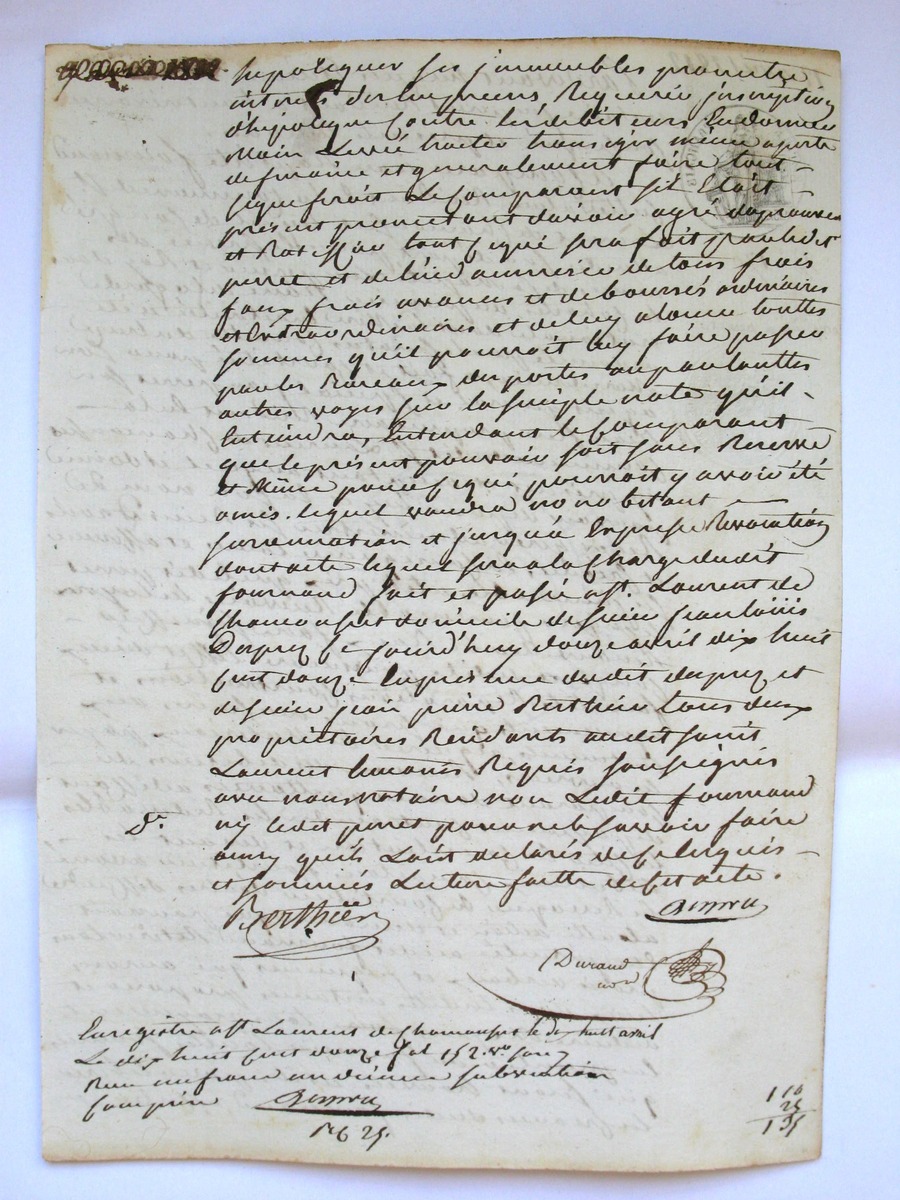 hypotequer ses jmmeubles prometre
interets des jmpreuns Requerir jnscription
d'hipoteque Contre les debiteurs En donner
Main Levée traiter transiger même a porte
de prairie et generalement faire tout
ceque feroit Le Comparant s'il Etoit
présent promettant d'avoir agré d'aprouver
et Ratiffier tout ceque sera fait par ledt
perret et de l'indemniser de tous frais
faux frais avances et deboursés ordinaires
et Extraordinaires et deluy alouer touttes
sommes qu'il pourroit luy faire passer
par les Bureaux des postes ou par touttes
autres voyes sur la simple note qu'il
Entiendra, Entendant le Comparant
que le présent pouvoir soit sans Reserve
et Même pour ce qui pourroit y avoir été
omis. lequel vaudra nonobstant
surannation et jusqu'à Expresse Revocation
dont acte lequel sera a la Charge dudit
fournand fait et passé a St. Laurent de
Chamousset domicile de sieur jean louis
Dupuy Ce jourd'huy douze avril dix huit
Cent douze En présence dudit dupuy et
de sieur jean pierre Berthier tous deux
propriétaires Residants audit saint
Laurent témoins Requis soussignés
avec nous notaire non Ledit fournand
ny ledit perret pour ne le savoir faire
ainsy qu'ils L'ont declarés de Ce Enquis
et sommés Lecture faitte de Cet acte.
Dt.
Berthier
Durand
Enregistré a St Laurent de Chamousset le dix huit avril
Le dix huit Cent douze fol 152 vo
Reçu un franc un décime subvention
Comprise
Rg 25.
1 10
25
1 35